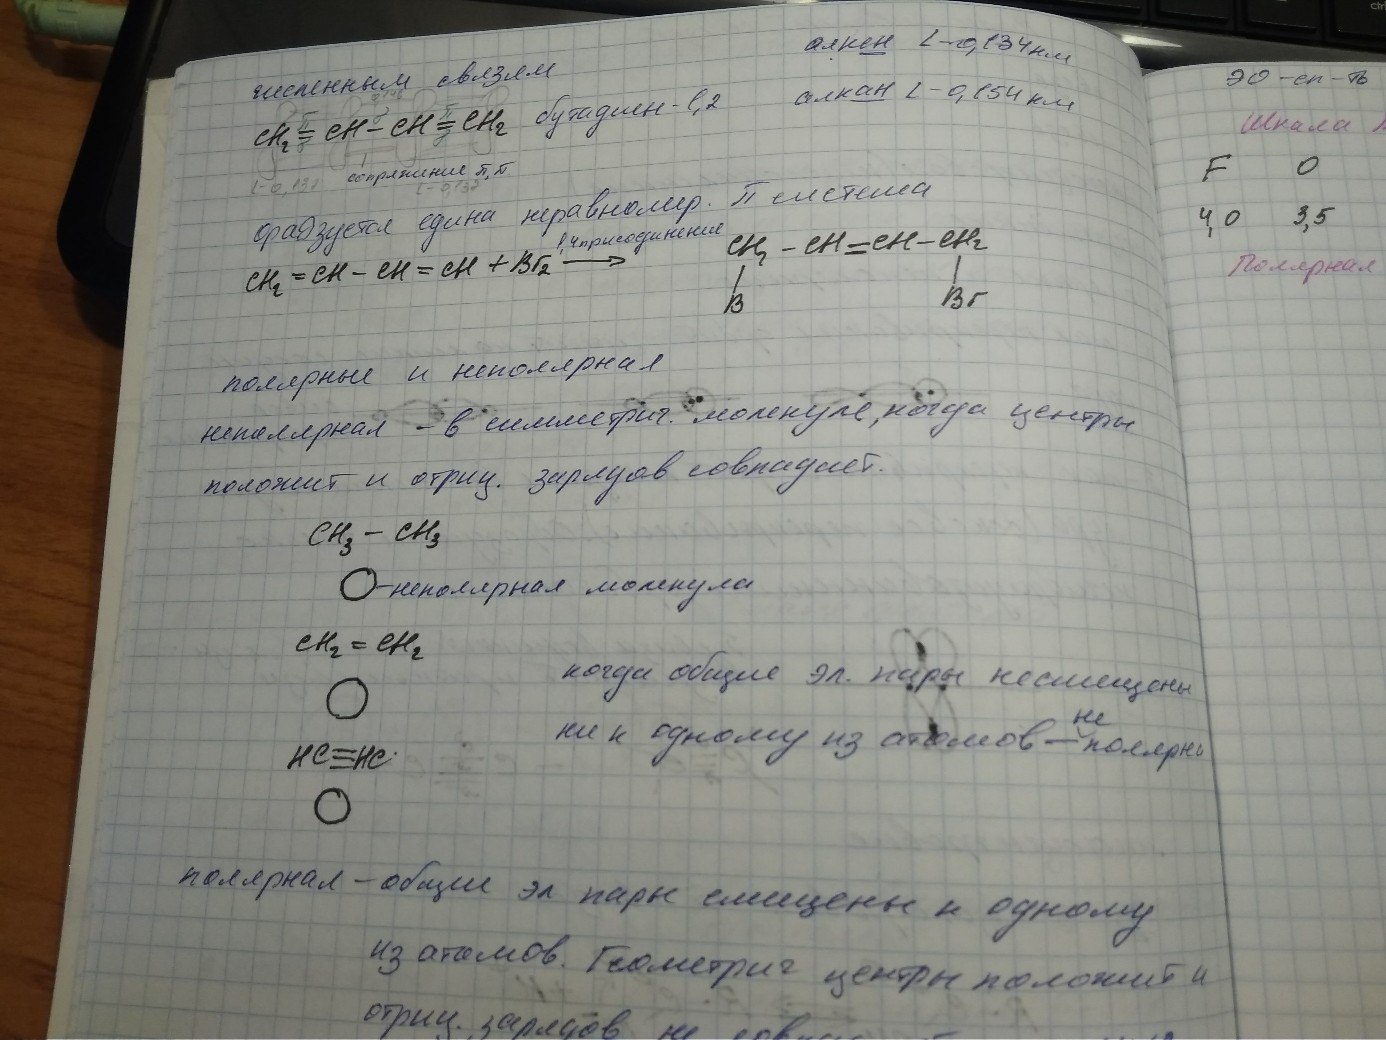 численным связям
алкен L-0,134 нм
алкан L-0,154 нм
CH₂=CH-CH=CH₂ бутадиен-1,2
π π
L-0,132 сопряжение π,π L-0,132
орабзуется едина неравномер. π система
CH₂=CH-CH=CH+Br₂ 1,4 присоединение → CH₂-CH=CH-CH₂
B Br
полярные и неполярная
неполярная - в симметрич. молекуле, когда центры
положит и отриц. зарядов совпадает.
CH₃-CH₃
-неполярная молекула
CH₂=CH₂
когда общие эл. пары несмещены
ни к одному из атомов - не полярн
HC≡HC
полярная - общие эл пары смещены к одному
из атомов. Геометрич центры положит и
отриц. зарядов не
ЭО-сп-ть
Шкала
F O
4,0 3,5
Полярная